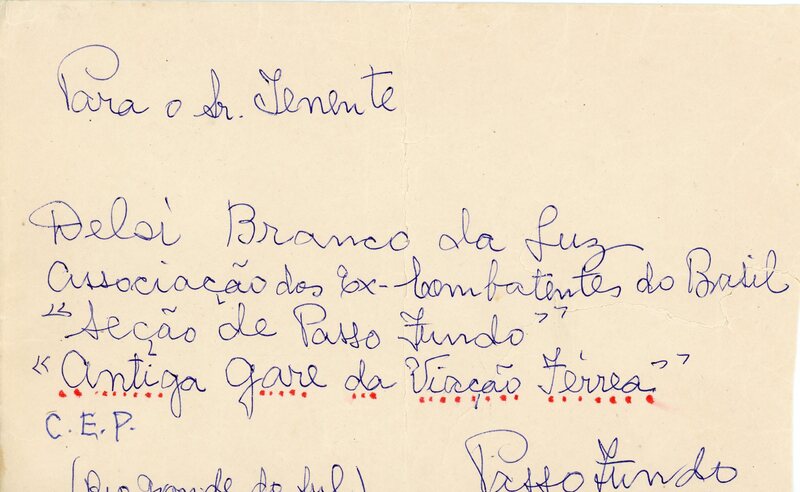 Para o Sr. Tenente
Delsi Branco da Luz
Associação dos Ex-Combatentes do Basil
"Seção de Passo Fundo"
"Antiga Gare da Viação Férrea"
C.E.P.
(Rio Grande do Sul) Passo Fundo